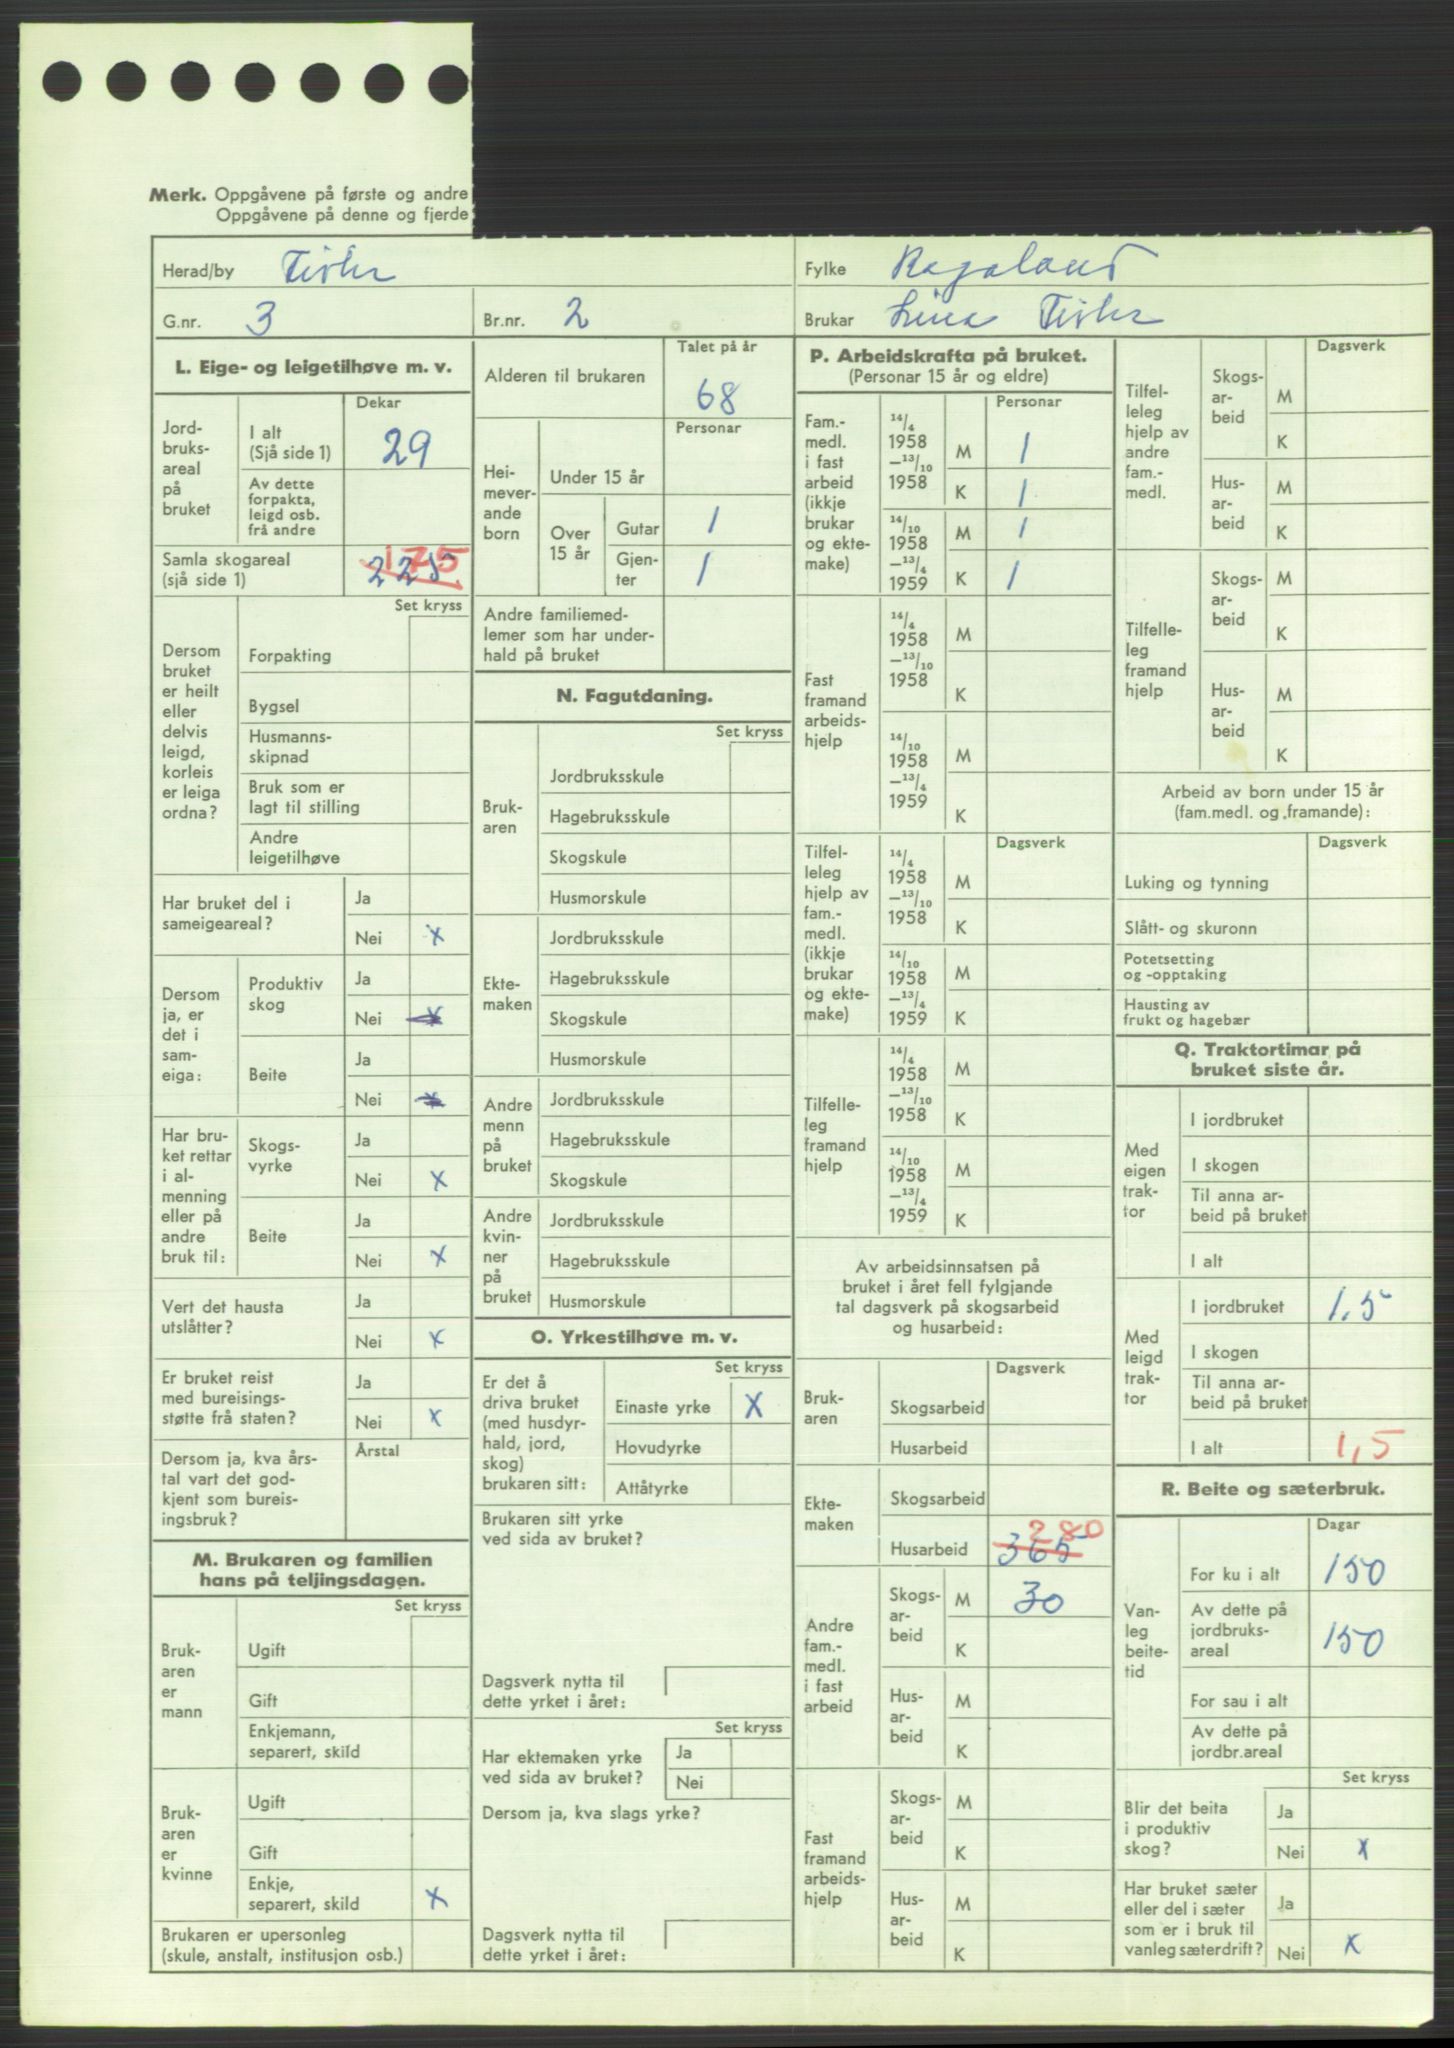 Merk. Oppgåvene på første og andre
Oppgåvene på denne og fjerde
Herad/by
Fylke Rogaland
G.nr. 3
Br.nr. 2
Brukar
L. Eige- og leigetilhøve m. v.
Dekar
Jord-
bruks-
areal
på
bruket
I alt
(Sjå side 1) 29
Av dette
forpakta,
leigd osb.
frå andre
Samla skogareal
(sjå side 1) 225 175
Set kryss
Dersom
bruket
er heilt
eller
delvis
leigd,
korleis
er leiga
ordna?
Forpakting
Bygsel
Husmanns-
skipnad
Bruk som er
lagt til stilling
Andre
leigetilhøve
Har bruket del i
sameigeareal?
Ja
Nei x
Dersom
ja, er
det i
sam-
eiga:
Produktiv
skog
Ja
Nei x
Beite
Ja
Nei x
Har bru-
ket rettar
i al-
menning
eller på
andre
bruk til:
Skogs-
vyrke
Ja
Nei x
Beite
Ja
Nei x
Vert det hausta
utslåtter?
Ja
Nei x
Er bruket reist
med bureisings-
støtte frå staten?
Ja
Nei x
Dersom ja, kva års-
tal vart det god-
kjent som bureis-
ingsbruk?
Årstal
M. Brukaren og familien
hans på teljingsdagen.
Set kryss
Bruk-
aren
er
mann
Ugift
Gift
Enkjemann,
separert, skild
Bruk-
aren
er
kvinne
Ugift
Gift
Enkje,
separert, skild x
Brukaren er upersonleg
(skule, anstalt, institusjon osb.)
Talet på år
Alderen til brukaren 68
Personar
Hei-
mever-
ande
born
Under 15 år
Over
15 år
Gutar 1
Gjen-
ter 1
Andre familiemed-
lemer som har under-
hald på bruket
N. Fagutdaning.
Set kryss
Bruk-
aren
Jordbruksskule
Hagebruksskule
Skogskule
Husmorskule
Ekte-
maken
Jordbruksskule
Hagebruksskule
Skogskule
Husmorskule
Andre
menn
på
bruket
Jordbruksskule
Hagebruksskule
Skogskule
Andre
kvin-
ner
på
bruket
Jordbruksskule
Hagebruksskule
Husmorskule
O. Yrkestilhøve m. v.
Set kryss
Er det å
driva bruket
(med husdyr-
hald, jord,
skog)
brukaren sitt:
Einaste yrke X
Hovudyrke
Attåtyrke
Brukaren sitt yrke
ved sida av bruket?
Dagsverk nytta til
dette yrket i året:
Set kryss
Har ektemaken yrke
ved sida av bruket?
Ja
Nei
Dersom ja, kva slags yrke?
Dagsverk nytta til
dette yrket i året:
P. Arbeidskrafta på bruket.
(Personar 15 år og eldre)
Personar
Fam.-
medl.
i fast
arbeid
(ikkje
brukar
og ekte-
make)
14/4
1958
—13/10
1958
M 1
K 1
14/10
1958
—13/4
1959
M 1
K 1
Fast
framand
arbeids-
hjelp
14/4
1958
—13/10
1958
M
K
14/10
1958
—13/4
1959
M
K
Dagsverk
Tilfel-
leleg
hjelp av
fam.-
medl.
(ikkje
brukar
og ekte-
make)
14/4
1958
—13/10
1958
M
K
14/10
1958
—13/4
1959
M
K
Tilfelle-
leg
framand
hjelp
14/4
1958
—13/10
1958
M
K
14/10
1958
—13/4
1959
M
K
Av arbeidsinnsatsen på
bruket i året fell fylgjande
tal dagsverk på skogsarbeid
og husarbeid:
Dagsverk
Bruk-
aren
Skogsarbeid
Husarbeid
Ekte-
maken
Skogsarbeid
Husarbeid 365 280
Andre
fam.-
medl.
i fast
arbeid
Skogs-
ar-
beid
M 30
K
Hus-
ar-
beid
M
K
Fast
framand
arbeids-
hjelp
Skogs-
ar-
beid
M
K
Hus-
ar-
beid
M
K
Dagsverk
Tilfel-
leleg
hjelp av
andre
fam.-
medl.
Skogs-
ar-
beid
M
K
Hus-
ar-
beid
M
K
Tilfelle-
leg
framand
hjelp
Skogs-
ar-
beid
M
K
Hus-
ar-
beid
M
K
Arbeid av born under 15 år
(fam.medl. og framande):
Dagsverk
Luking og tynning
Slått- og skuronn
Potetsetting
og -opptaking
Hausting av
frukt og hagebær
Q. Traktortimar på
bruket siste år.
Med
eigen
trak-
tor
I jordbruket
I skogen
Til anna ar-
beid på bruket
I alt
Med
leigd
trak-
tor
I jordbruket 1,5
I skogen
Til anna ar-
beid på bruket
I alt 1,5
R. Beite og sæterbruk.
Dagar
Van-
leg
beite-
tid
For ku i alt 150
Av dette på
jordbruks-
areal 150
For sau i alt
Av dette på
jordbr.areal
Set kryss
Blir det beita
i produktiv
skog?
Ja
Nei x
Har bruket sæter
eller del i sæter
som er i bruk til
vanleg sæterdrift?
Ja
Nei x